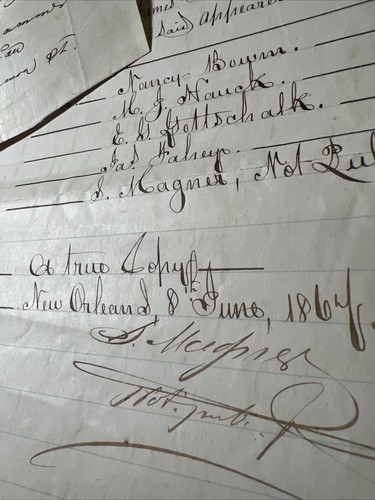 said appeare
Nancy Bowm.
M. J. Nauck.
E. G. Gottschalk.
Jas Fahey.
S. Magner, Not Pub
A true Copy
New Orleans, 8 June, 1864.
S. Magner
Not. pub.